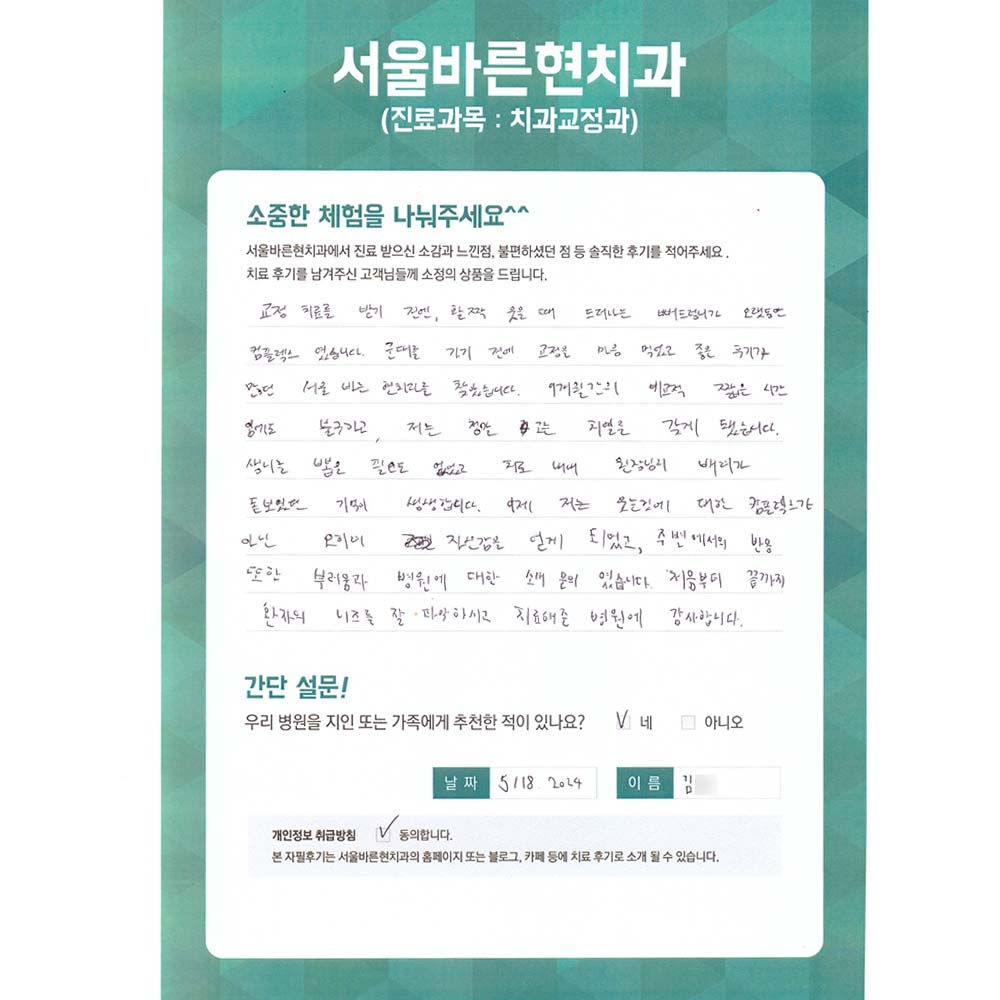 서울바른현치과
(진료과목 : 치과교정과)
소중한 체험을 나눠주세요^^
서울바른현치과에서 진료 받으신 소감과 느낀점, 불편하셨던 점 등 솔직한 후기를 적어주세요.
치료 후기를 남겨주신 고객님들께 소정의 상품을 드립니다.
교정 치료를 받기 전엔, 활짝 웃을 때 드러나는 뻐드렁니가 오랫동안
컴플렉스 였습니다. 군대를 가기 전에 교정을 마음 먹었고 좋은 후기가
많았던 서울 바른 현치과를 찾았습니다. 9개월간의 비교적 짧은 시간
임에도 불구하고, 저는 정말 고른 치열을 갖게 됐습니다.
생니를 뽑을 필요도 없었고 치료 내내 원장님의 배려가
돋보였던 기억이 생생합니다. 이제 저는 웃는것에 대한 컴플렉스가
아닌 오히려 자신감을 얻게 되었고, 주변에서의 반응
또한 부러움과 병원에 대한 소개 문의 였습니다. 처음부터 끝까지
환자의 니즈를 잘 파악하시고 치료해준 병원에 감사합니다.
간단 설문!
우리 병원을 지인 또는 가족에게 추천한 적이 있나요? 네 아니오
날짜 5/18. 2024 이름 김
개인정보 취급방침 동의합니다.
본 자필후기는 서울바른현치과의 홈페이지 또는 블로그, 카페 등에 치료 후기로 소개 될 수 있습니다.